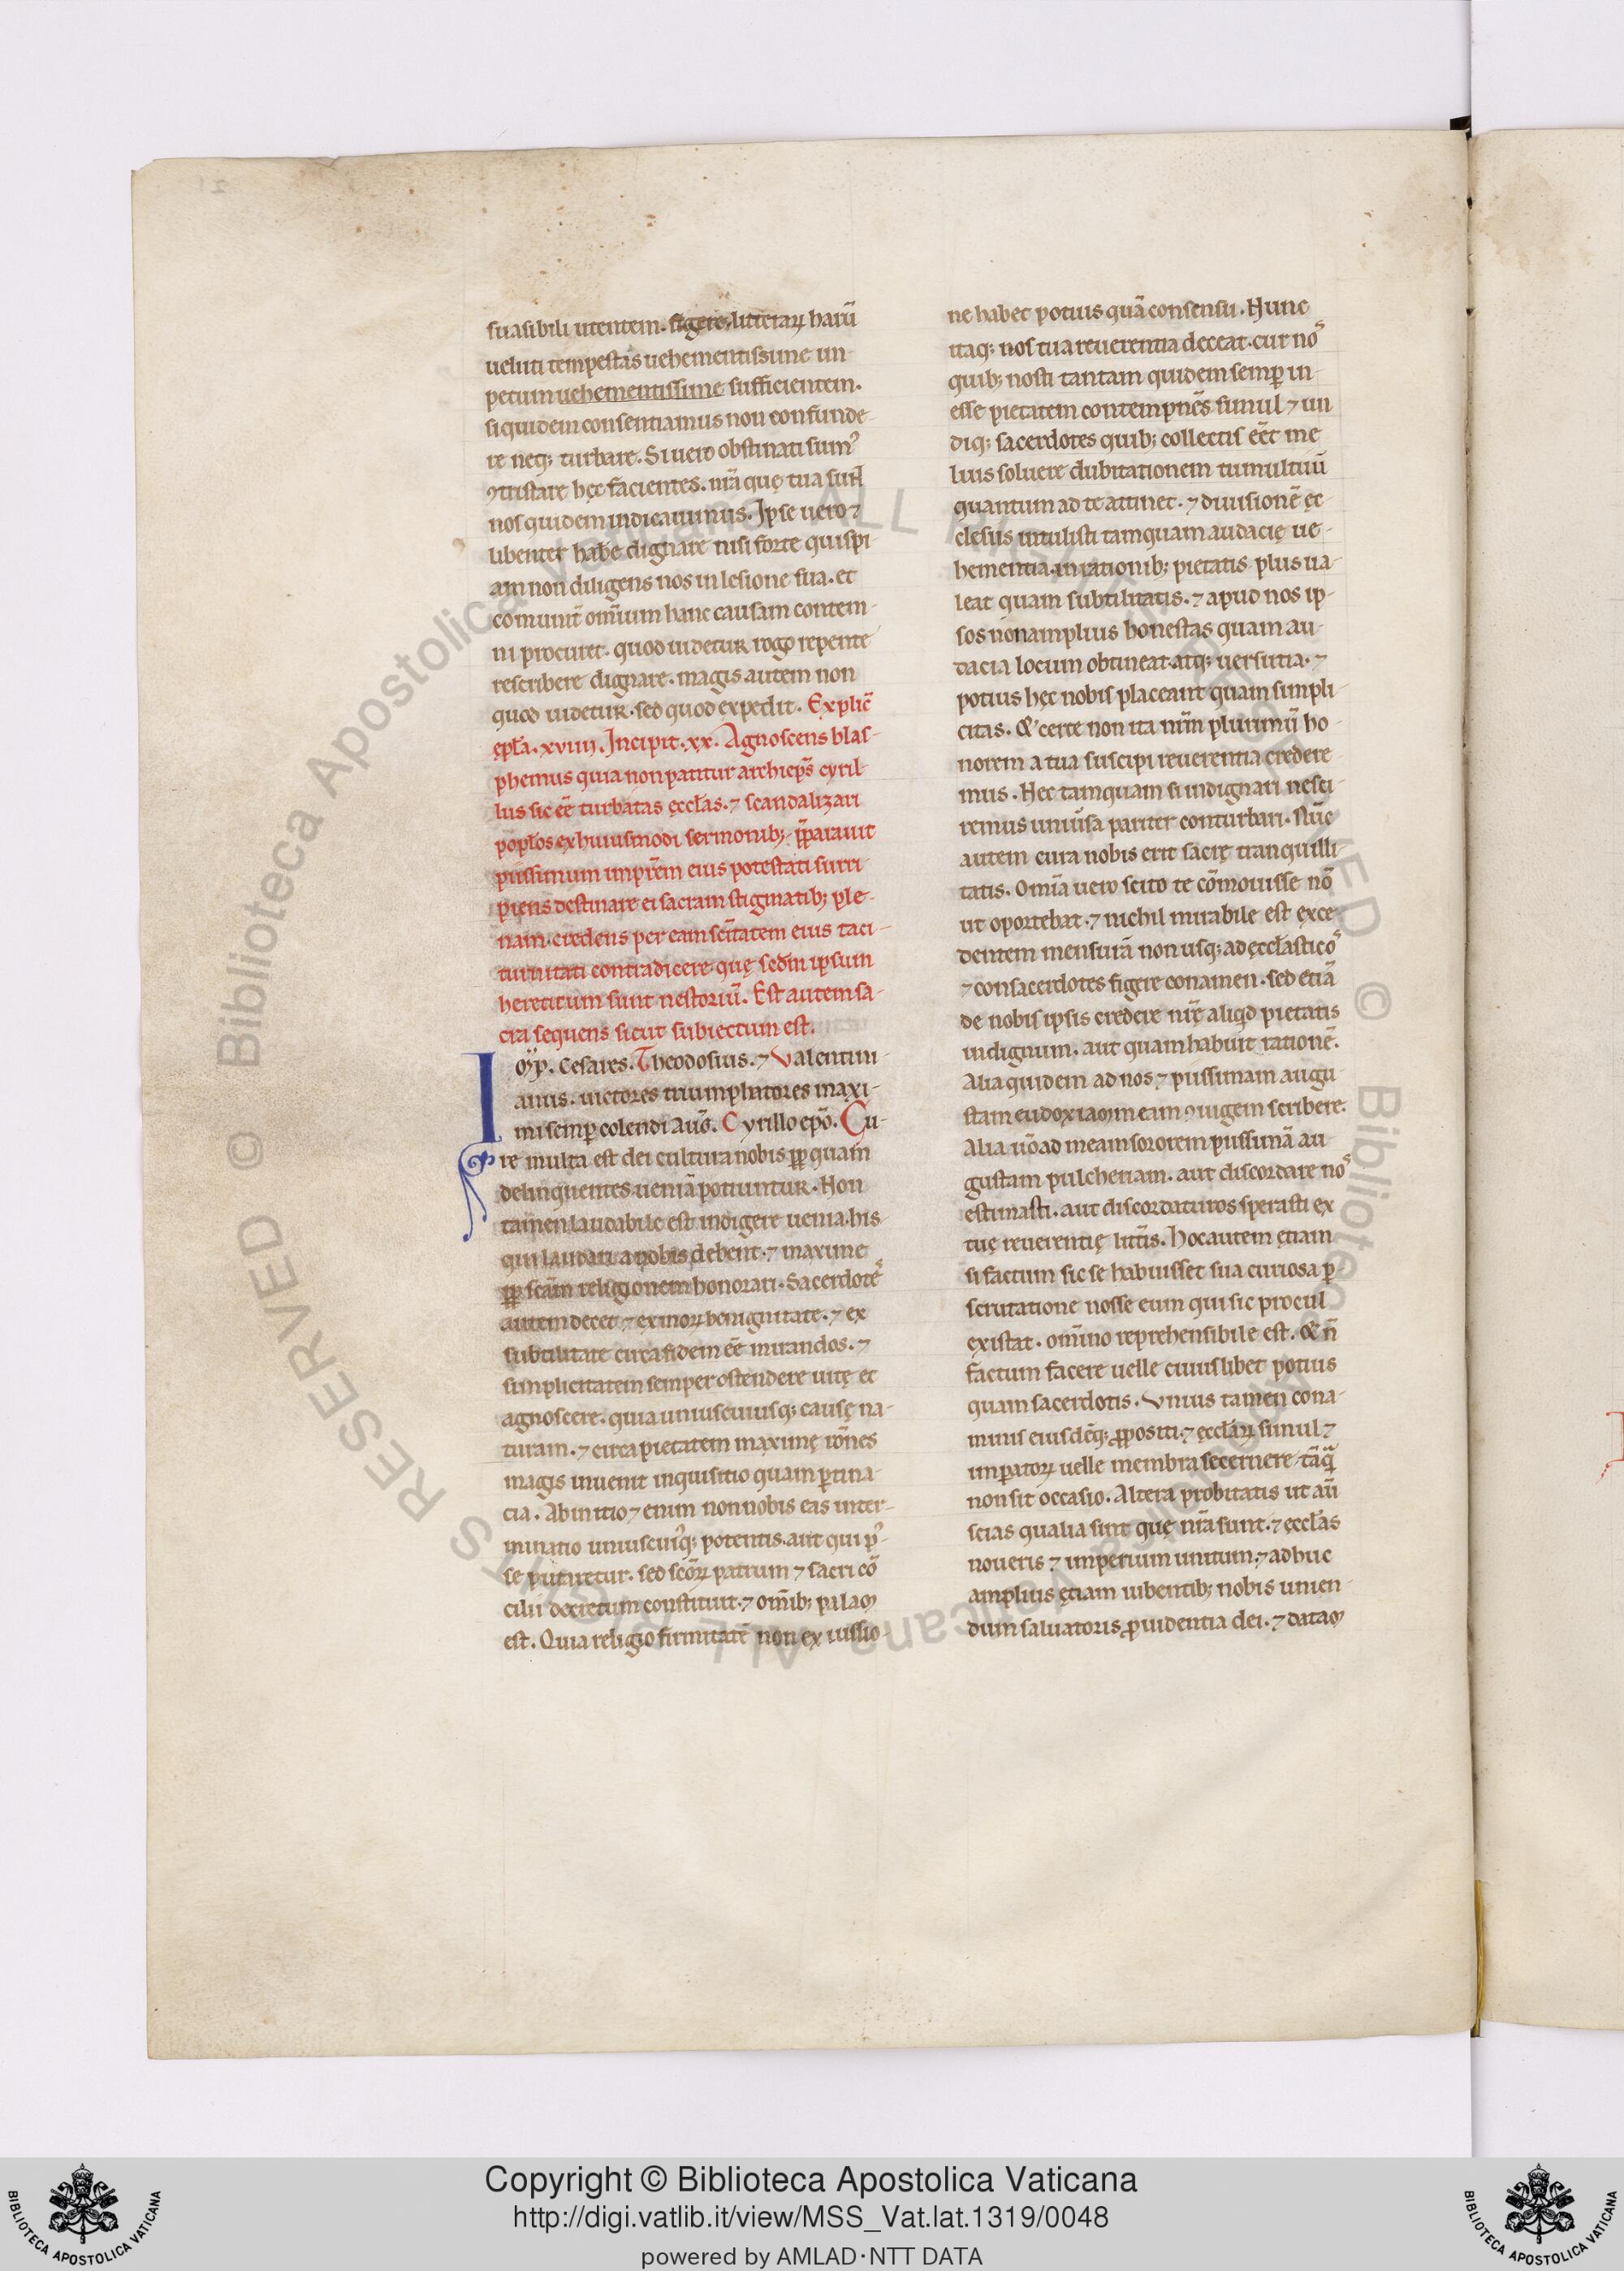 suasibili utentem. figere, litterarꝝ harū
ueluti tempestas uehementissime im-
petum uehementissime sufficientem.
siquidem consentiamus non confunde-
re neq; turbare. Si uero obstinati sum᾽
ꝯtristare hęc facientes. nr̄a quę tua sun̄t
nos quidem indicauimus. Ipse uero ⁊
libenter habe dignare nisi forte quispi-
am non diligens nos in lesione sua. et
comunit̄ omīum hanc causam contem-
ni procuret. quod uidetur rogo repente
rescribere dignare. magis autem non
quod uidetur. sed quod expedit. Explic̄
ep̄la. xviiij. Incipit. xx. Agnoscens blas-
phemus quia non patitur archiep̄s cyril-
lus sic ēē turbatas ęccl̄as. ⁊ scandalizari
popl̄os ex huiusmodi sermonib; p̄parauit
piissimum impr̄em eius potestati surri-
piens destinare ei sacram stigmatib; ple-
nam. credens per eam sc̄itatem eius taci-
turnitati contradicere quę sedm̄ ipsum
hereticum sunt nestoriū. Est autem sa-
cra sequens sicut subiectum est.
Imp̄. Cesares. Theodosius. ⁊ Valentini-
anus. uictores triumphatores maxi-
mi semp̱ colendi Auḡ. Cyrillo ep̄o. Cu-
re multa est dei cultura nobis ꝓp̱ quam
delinquentes uenia potiuntur. Non
tamen laudabile est indigere uenia. his
qui laudari a nobis debent. ⁊ maxime
ꝓp̱ sc̄am religionem honorari. Sacerdote᾽
autem decet ⁊ ex morꝝ benignitate. ⁊ ex
subtilitate circa fidem ēē mirandos. ⁊
simplicitatem semper ostendere uitę et
agnoscere. quia uniuscuiusq; causę na-
turam. ⁊ circa pietatem maximę rōnes
magis inuenit inquisitio quam ꝑtina-
cia. Ab initio ⁊ enim non nobis eas inter-
minatio uniuscui᾽q; potentis. aut qui p᾽-
se putaretur. sed sc̄orꝝ patrum ⁊ sacri cō
cilii decretum constituit. ⁊ omīb; palam
est. Quia religio firmitatē non ex iussio-
ne habet potius quā consensu. Hunc
itaq; nos tua reuerentia deceat. cur no᾽
quib; nosti tantam quidem semꝑ in-
esse pietatem contempnēs simul ⁊ un
diq; sacerdotes quib; collectis ēēt me
lius soluere dubitationem tumultuū
quantum ad te attinet. ⁊ diuisionē ęc-
clesiis intulisti tamquam audacię ue-
hementia. in rationib; pietatis plus ua-
leat quam subtilitatis. ⁊ apud nos ip-
sos non amplius honestas quam au-
dacia locum obtineat. atq; uersutia. ⁊
potius hęc nobis placeant quam simpli-
citas. & certe non ita nim̄ plurimū ho-
norem a tua suscipi reuerentia credere
mus. Hec tamquam si indignari nesci-
remus uniu᾽sa pariter conturbari. Nūc
autem cura nobis erit sacrę tranquilli-
tatis. Omīa uero scito te cōmouisse nō
ut oportebat. ⁊ nichil mirabile est exce-
dentem mensurā non usq; ad ęccl̄astico᾽
⁊ consacerdotes figere conamen. sed etiā
de nobis ipsis credere nr̄ę aliqd pietatis
indignum. aut quam habuit rationē.
Alia quidem ad nos ⁊ piissimam augu-
stam eudoxiam meam ꝯiugem scribere.
Alia uō ad meam sororem piissimā au
gustam pulcheriam. aut discordare no᾽
estimasti. aut discordaturos sperasti ex
tuę reuerentię litt̄is. Hoc autem etiam
si factum sic se habuisset sua curiosa ꝑ
scrutatione nosse eum qui sic procul
existat. omīno reprehensibile est. & n̄
factum facere uelle cuiuslibet potius
quam sacerdotis. Vnius tamen cona-
minis eiusdēq; ꝓpositi. ⁊ ęccl̄arꝝ simul ⁊
imꝑatorꝝ uelle membra secernere tāq̄
non sit occasio. Altera probitatis ut aū
scias qualia sint quę nr̄a sunt. ⁊ ęccl̄as
noueris ⁊ imperium unitum. ⁊ adhuc
amplius etiam iubentib; nobis unien-
dum saluatoris ꝓuidentia dei. ⁊ datam
© Biblioteca Apostolica Vaticana ALL RIGHTS RESERVED
Copyright © Biblioteca Apostolica Vaticana
http://digi.vatlib.it/view/MSS_Vat.lat.1319/0048
powered by AMLAD·NTT DATA
BIBLIOTECA APOSTOLICA VATICANA
BIBLIOTECA APOSTOLICA VATICANA